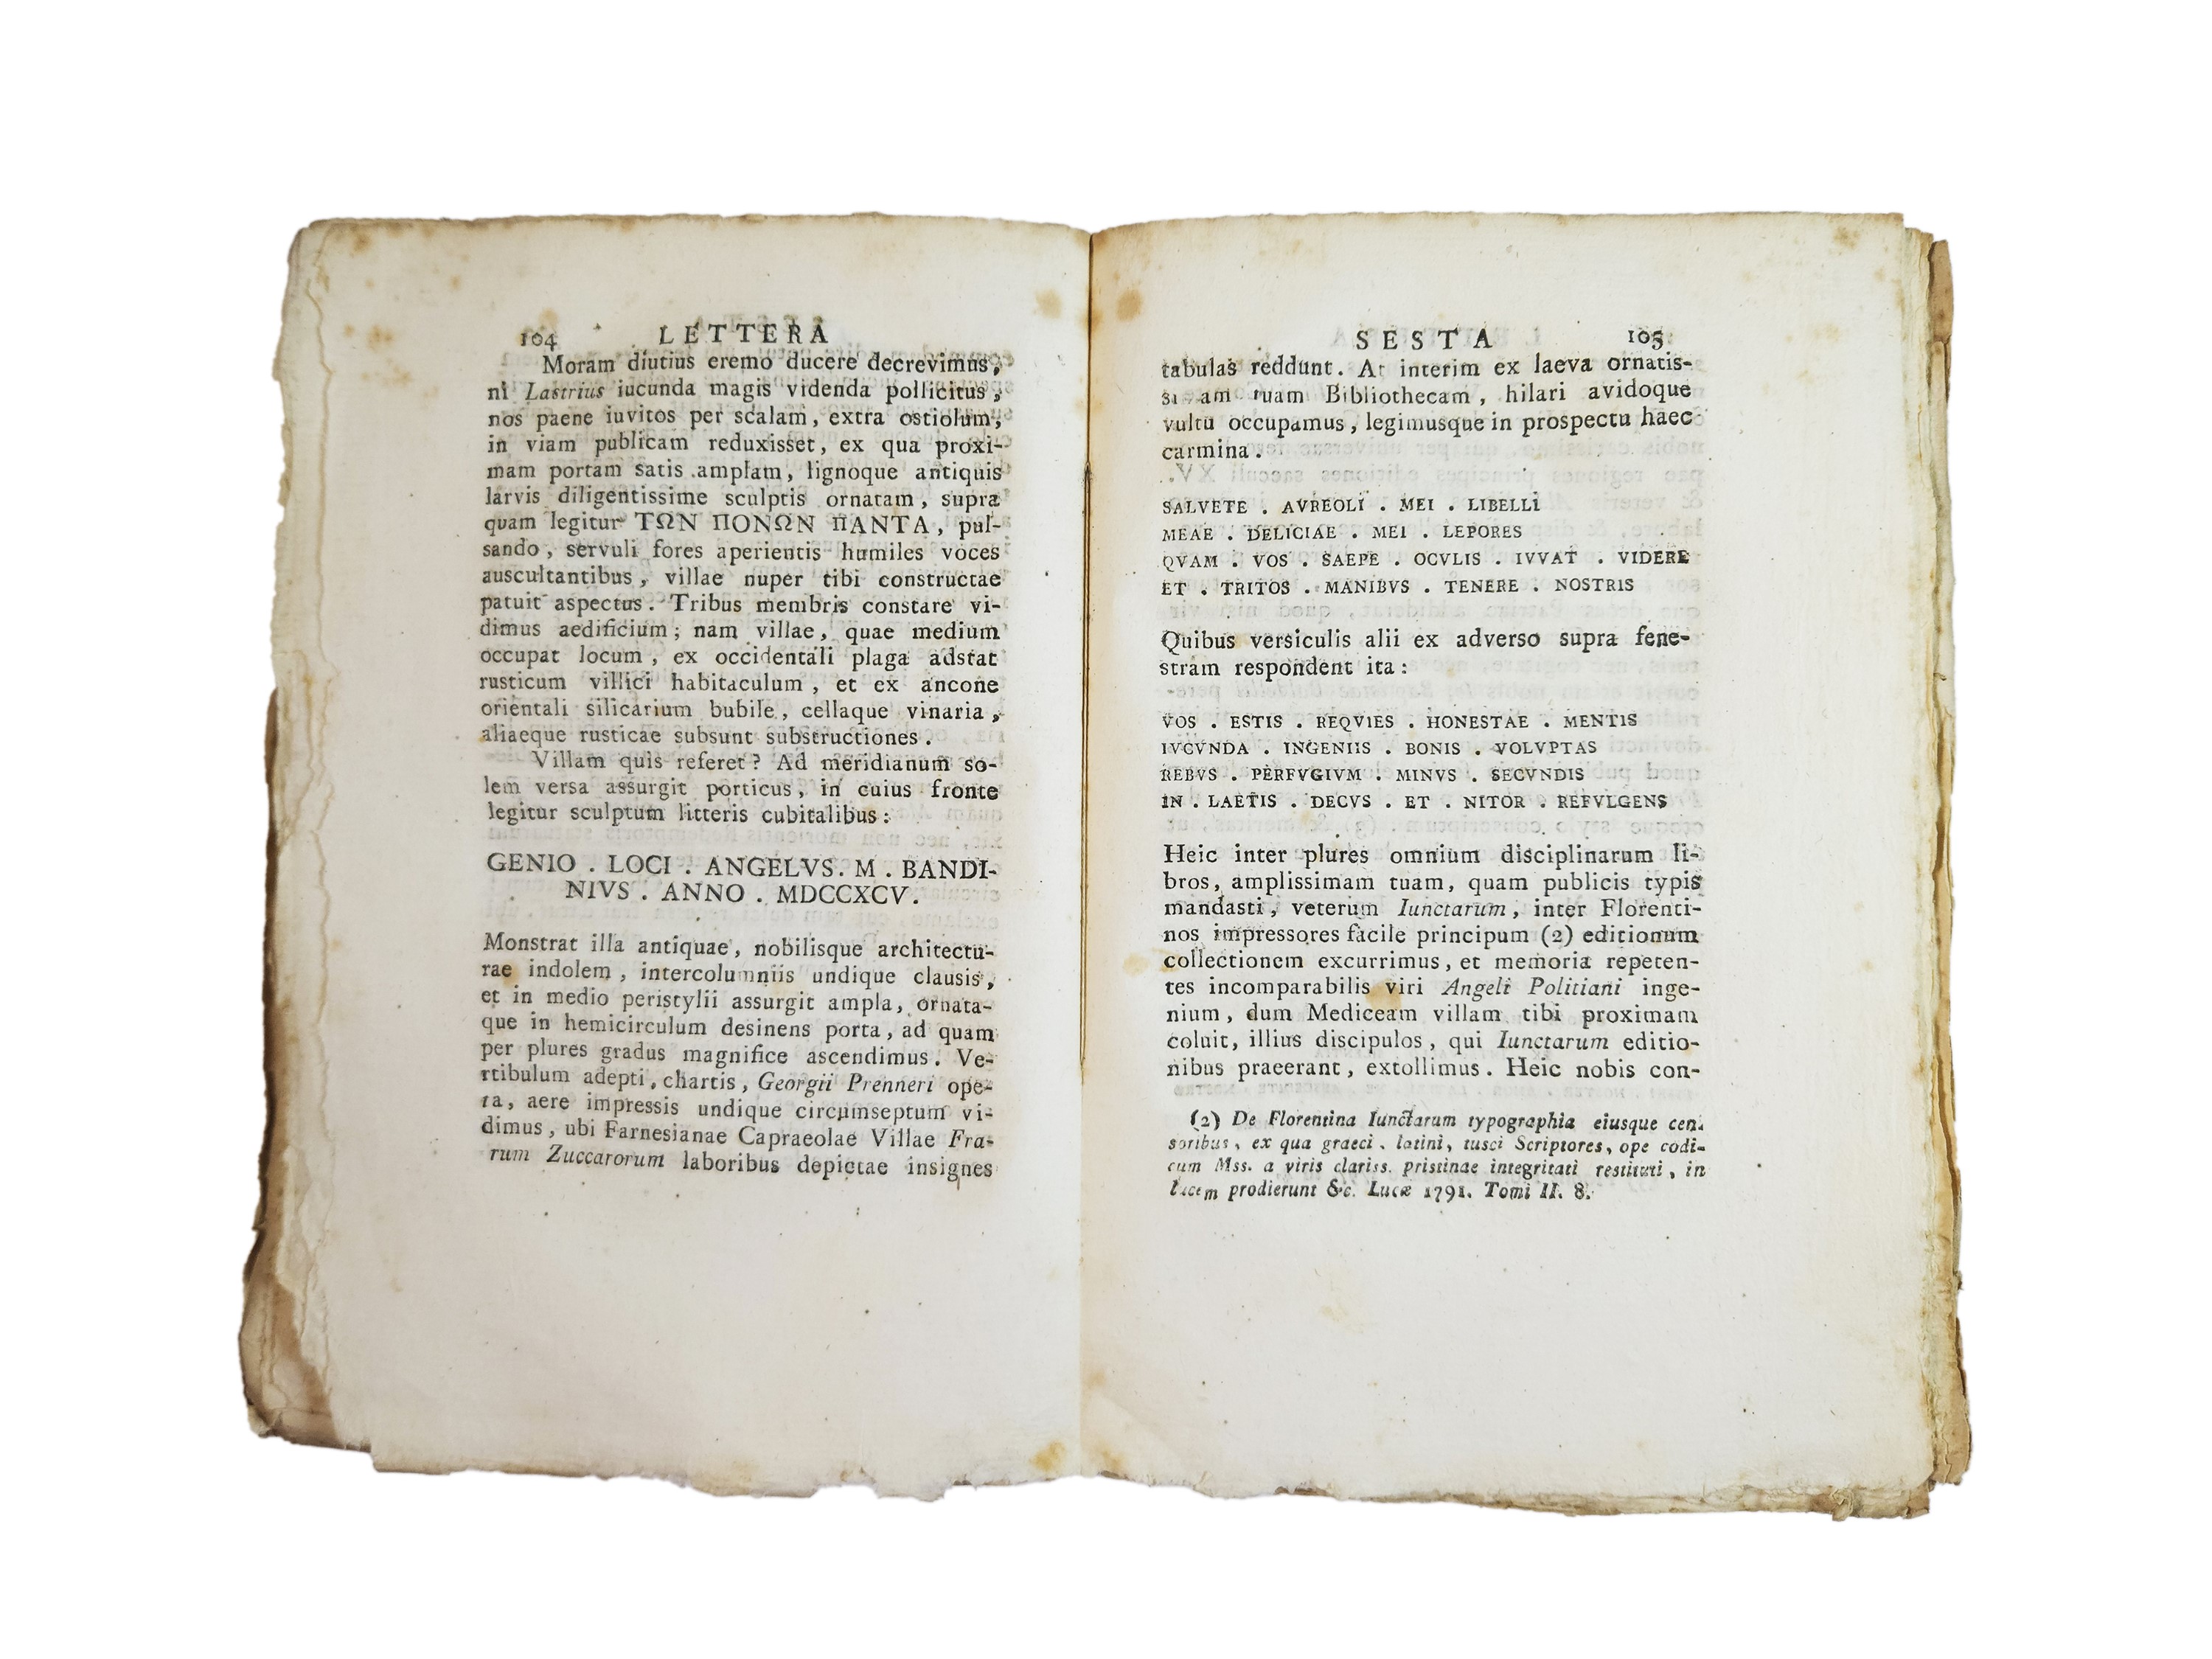 104 LETTERA
Moram diutius eremo ducere decrevimus,
ni Lastrius iucunda magis videnda pollicitus,
nos paene iuvitos per scalam, extra ostiolum,
in viam publicam reduxisset, ex qua proxi-
mam portam satis amplam, lignoque antiquis
larvis diligentissime sculptis ornatam, supra
quam legitur ΤΩΝ ΠΟΝΩΝ ΠΑΝΤΑ, pul-
sando, servuli fores aperientis humiles voces
auscultantibus, villae nuper tibi constructae
patuit aspectus. Tribus membris constare vi-
dimus aedificium; nam villae, quae medium
occupat locum, ex occidentali plaga adstat
rusticum villici habitaculum, et ex ancone
orientali silicarium bubile, cellaque vinaria,
aliaeque rusticae subsunt substructiones.
Villam quis referet? Ad meridianum so-
lem versa assurgit porticus, in cuius fronte
legitur sculptum litteris cubitalibus:
GENIO . LOCI . ANGELVS . M . BANDI-
NIVS . ANNO . MDCCXCV.
Monstrat illa antiquae, nobilisque architectu-
rae indolem, intercolumniis undique clausis,
et in medio peristylii assurgit ampla, ornata-
que in hemicirculum desinens porta, ad quam
per plures gradus magnifice ascendimus. Ve-
stibulum adepti, chartis, Georgii Prenneri ope-
ra, aere impressis undique circumseptum vi-
dimus, ubi Farnesianae Capraeolae Villae Fra-
rum Zuccarorum laboribus depictae insignes
SESTA 105
tabulas reddunt. At interim ex laeva ornatis-
am tuam Bibliothecam, hilari avidoque
vultu occupamus, legimusque in prospectu haec
carmina.
SALVETE . AVREOLI . MEI . LIBELLI
MEAE . DELICIAE . MEI . LEPORES
QVAM . VOS . SAEPE . OCVLIS . IVVAT . VIDERE
ET . TRITOS . MANIBVS . TENERE . NOSTRIS
Quibus versiculis alii ex adverso supra fene-
stram respondent ita:
VOS . ESTIS . REQVIES . HONESTAE . MENTIS
IVCVNDA . INGENIIS . BONIS . VOLVPTAS
REBVS . PERFVGIVM . MINVS . SECVNDIS
IN . LAETIS . DECVS . ET . NITOR . REFVLGENS
Heic inter plures omnium disciplinarum li-
bros, amplissimam tuam, quam publicis typis
mandasti, veterum Iunctarum, inter Florenti-
nos impressores facile principum (2) editionum
collectionem excurrimus, et memoria repeten-
tes incomparabilis viri Angeli Politiani inge-
nium, dum Mediceam villam tibi proximam
coluit, illius discipulos, qui Iunctarum editio-
nibus praeerant, extollimus. Heic nobis con-
(2) De Florentina Iunctarum typographia eiusque cen-
soribus, ex qua graeci, latini, tusci Scriptores, ope codi-
cum Mss. a viris clariss. pristinae integritati restituti, in
lucem prodierunt &c. Lucæ 1791. Tomi II. 8.